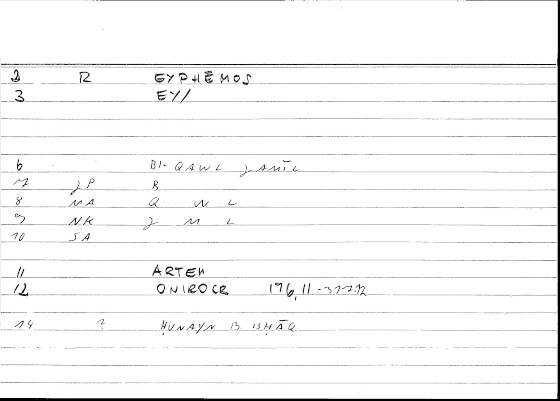 2 R EYPHĒMOS
3 EY/
6 BI-QAWL ǦAMĪL
7 ǦP B
8 MA Q W L
9 NK Ǧ M L
10 SA
11 ARTEM
12 ONIROCR 196,11
14 2 ḤUNAYN B ISḤĀQ